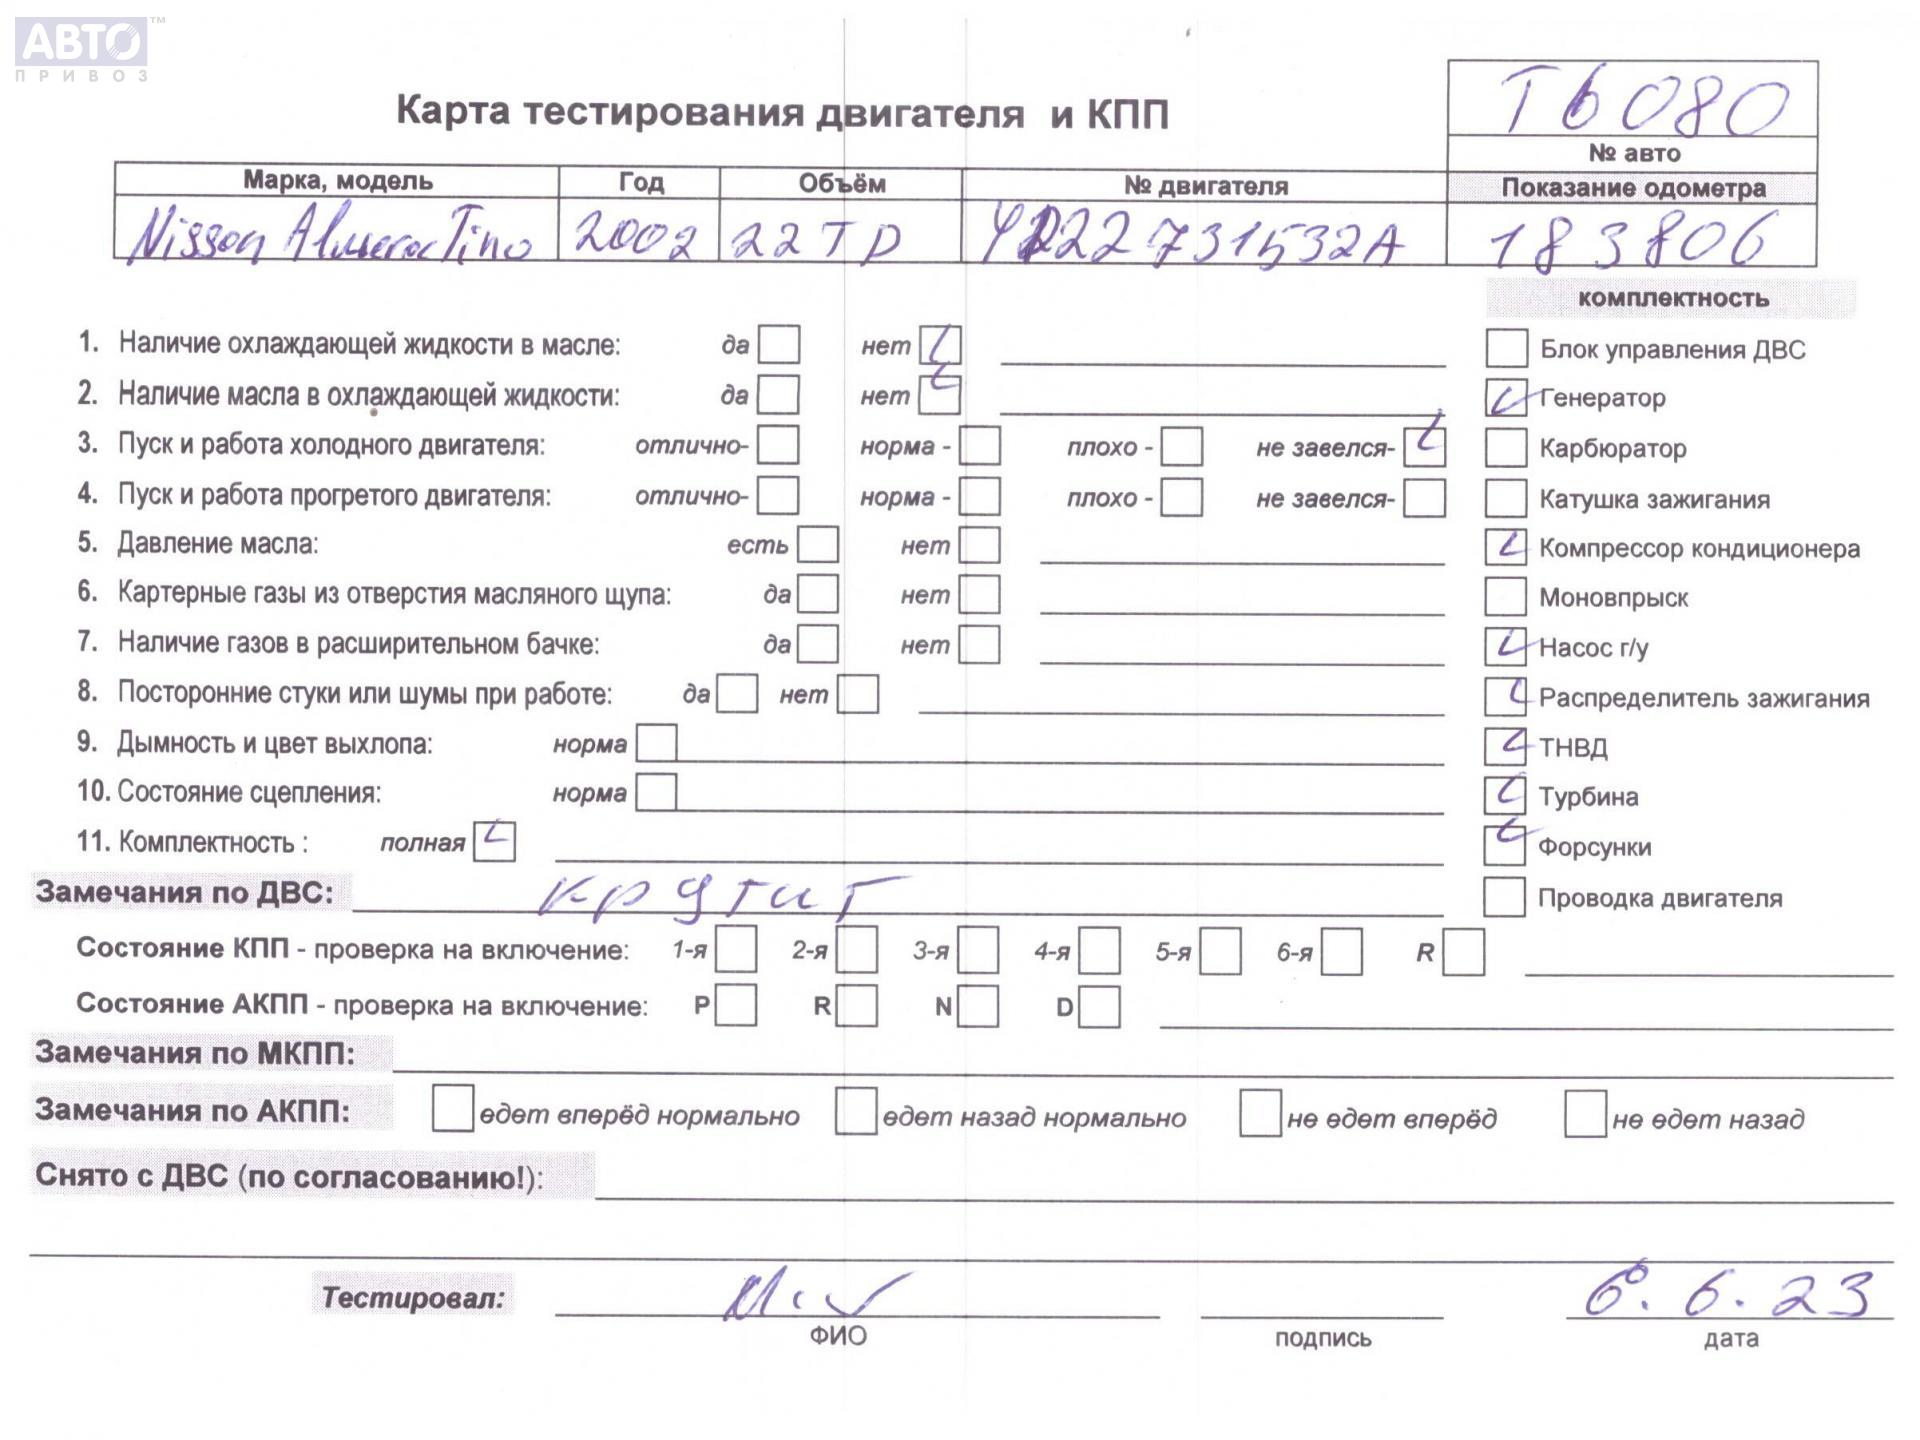 АВТО™
ПРИВОЗ
Карта тестирования двигателя и КПП
Т6080
№ авто
Марка, модель Год Объём № двигателя Показание одометра
Nissan Almera Tino 2002 22TD YD22731532A 183806
комплектность
1. Наличие охлаждающей жидкости в масле: да нет Блок управления ДВС
2. Наличие масла в охлаждающей жидкости: да нет Генератор
3. Пуск и работа холодного двигателя: отлично- норма - плохо - не завелся- Карбюратор
4. Пуск и работа прогретого двигателя: отлично- норма - плохо - не завелся- Катушка зажигания
5. Давление масла: есть нет Компрессор кондиционера
6. Картерные газы из отверстия масляного щупа: да нет Моновпрыск
7. Наличие газов в расширительном бачке: да нет Насос г/у
8. Посторонние стуки или шумы при работе: да нет Распределитель зажигания
9. Дымность и цвет выхлопа: норма ТНВД
10. Состояние сцепления: норма Турбина
11. Комплектность : полная Форсунки
Замечания по ДВС: крутит Проводка двигателя
Состояние КПП - проверка на включение: 1-я 2-я 3-я 4-я 5-я 6-я R
Состояние АКПП - проверка на включение: P R N D
Замечания по МКПП:
Замечания по АКПП: едет вперёд нормально едет назад нормально не едет вперёд не едет назад
Снято с ДВС (по согласованию!):
Тестировал: 6.6.23
ФИО подпись дата